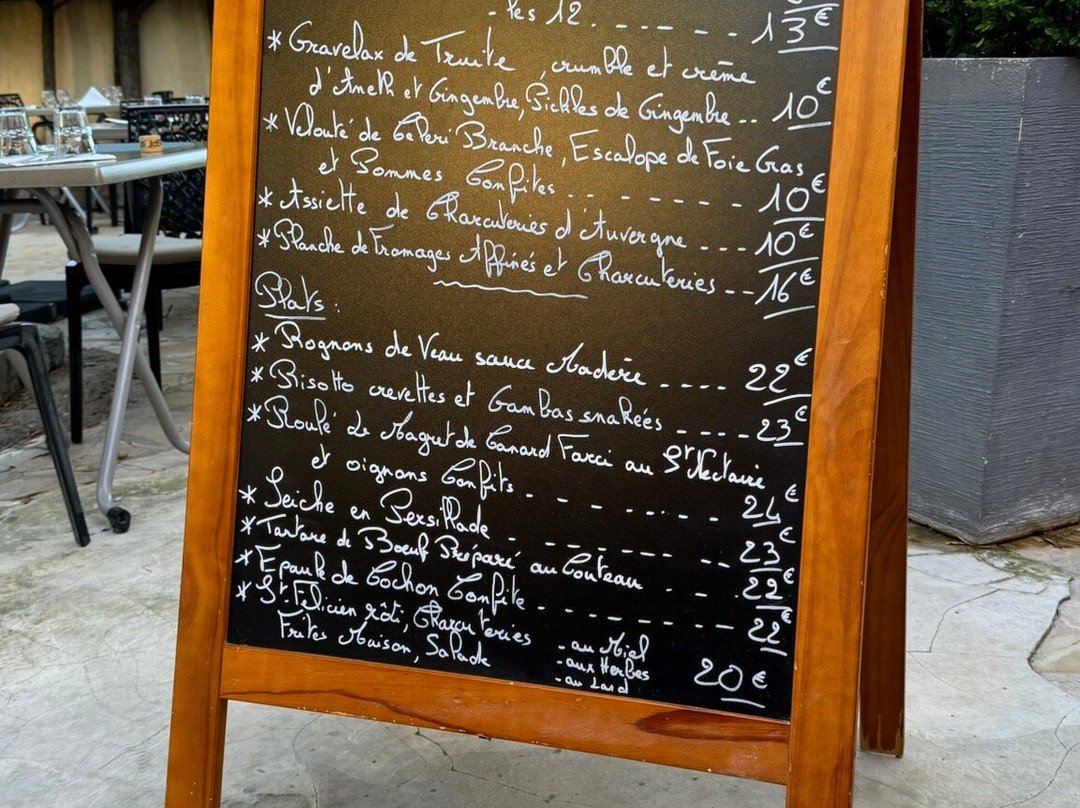 - les 12. - - - - - - 13€
* Gravelax de Truite, crumble et crème
d'Aneth et Gingembre, Pickles de Gingembre .. 10€
* Velouté de Céleri Branche, Escalope de Foie Gras
et Pommes Confites .. - - - - - - 10€
* Assiette de Charcuteries d'Auvergne - - - 10€
* Planche de Fromages Affinés et Charcuteries - - 16€
Plats :
* Rognons de Veau sauce Madère - - - - 22€
* Risotto crevettes et Gambas snakées - - - - 23€
* Roulé de Magret de Canard Farci au St Nectaire
et oignons Confits - - - - - - - 24€
* Seiche en Persillade - - - - - - - - 23€
* Tartare de Boeuf Préparé au Couteau - - - 22€
* Epaule de Cochon Confite - - - - - - - 22€
* St Félicien rôti, Charcuteries
Frites Maison, Salade
- au Miel
- aux Herbes
- au Lard
20€